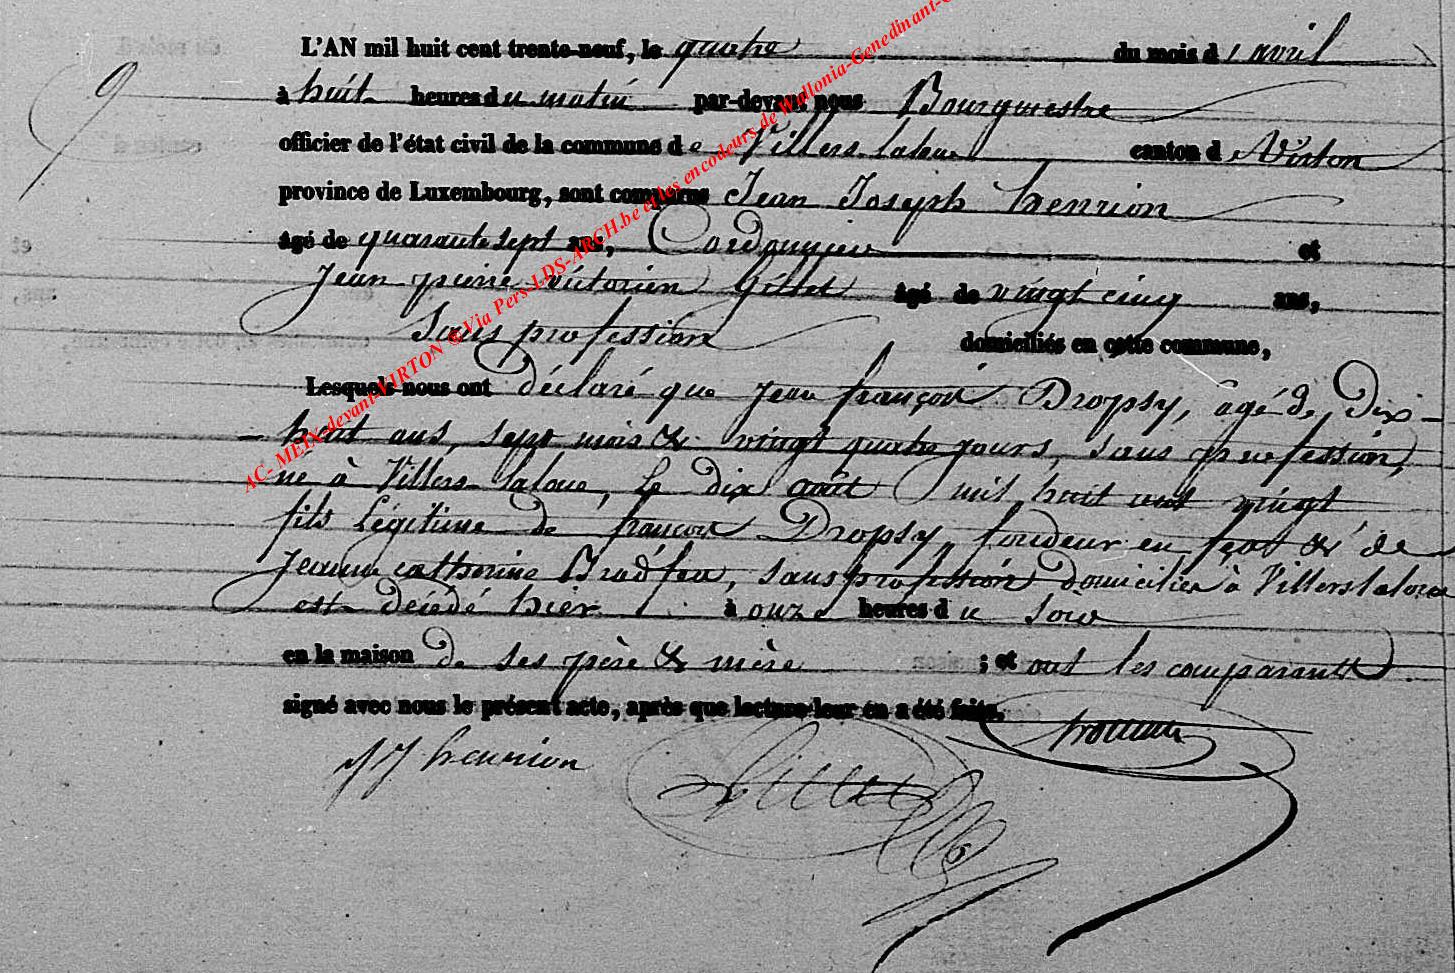 9
L'AN mil huit cent trente-neuf, le quatre du mois d'avril
à huit heures du matin par-devant nous Bourgmestre
officier de l'état civil de la commune de Villers laloue canton d Virton
province de Luxembourg, sont comparus Jean Joseph henrion
âgé de quarante sept ans, Cordonnier et
Jean pierre victorien Gillet âgé de vingt cinq ans,
Sans profession domiciliés en cette commune,
Lesquels nous ont déclaré que Jean françois Dropsy, agé de dix-
huit ans, sept mois & vingt quatre jours, sans profession,
né à Villers laloue, le dix août mil huit cent vingt
fils légitime de françois Dropsy, fondeur en & de
Jeanne catherine sans profession domiciliés à Villers laloue
est décédé hier à onze heures du soir
en la maison de ses père & mère ; et ont les comparants
signé avec nous le présent acte, après que lecture leur en a été faite.
JJ henrion
AC- MEIX-devant-VIRTON ©Via Pers-LDS-ARCH.be et les encodeurs de Wallonia-Genedinant-